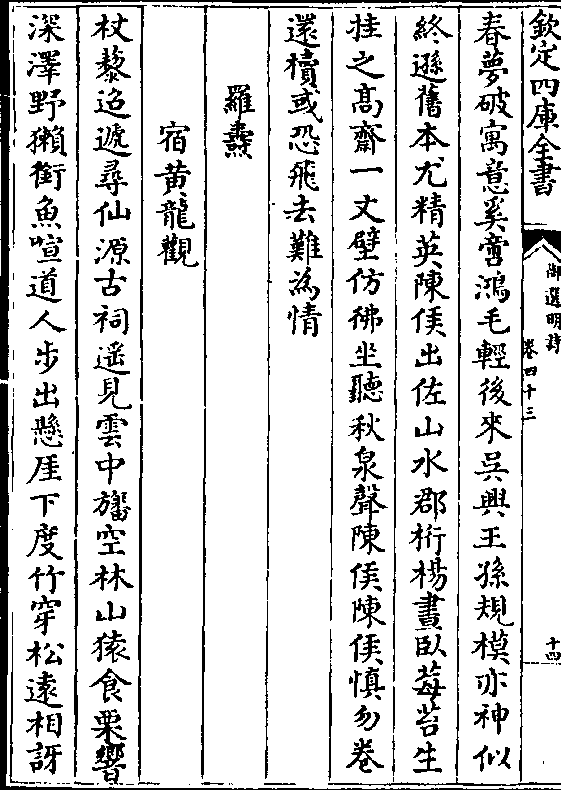 欽定四庫全書
御選明詩
卷四十三
十四
春夢破寓意奚啻鴻毛輕後來吳興王孫規模亦神似
終遜舊本尤精英陳侯出佐山水郡桁楊晝臥莓苔生
挂之髙齋一丈壁仿彿坐聽秋泉聲陳侯陳侯慎勿卷
還櫝或恐飛去難為情
羅燾
宿黄龍觀
杖藜迢遞尋仙源古祠遥見雲中旛空林山猿食栗響
深澤野獺銜魚喧道人步出懸厓下度竹穿松遠相訝